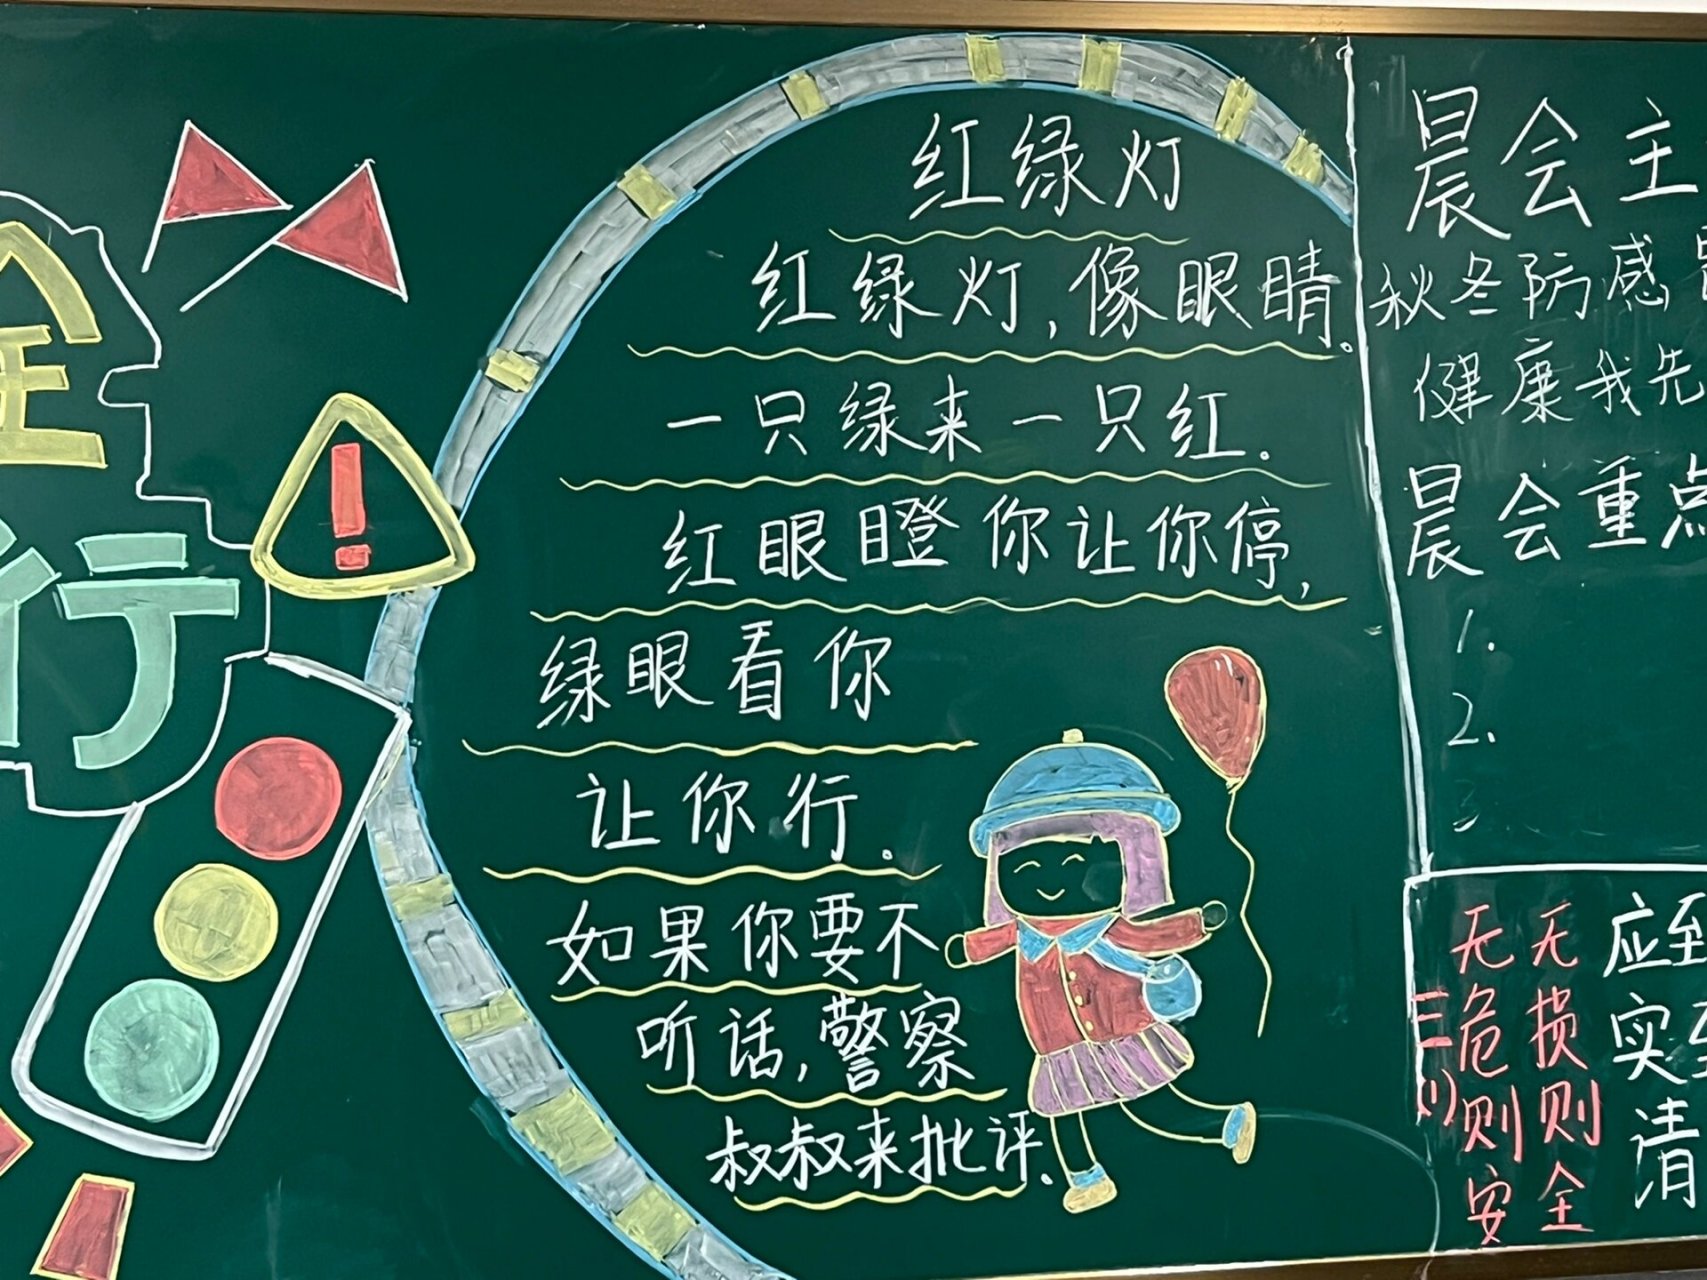 全
行
红绿灯
红绿灯,像眼睛。
一只绿来一只红.
红眼瞪你让你停,
绿眼看你
让你行.
如果你要不
听话,警察
叔叔来批评.
晨会主
秋冬防感
健康我先
晨会重点
1.
2.
3
无危则安
无损则全
应到
实
清